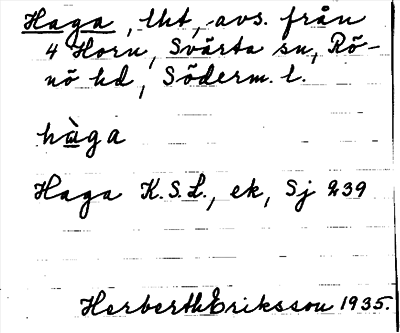 Haga, lht, avs. från
4 Horn, Svärta sn, Rö-
nö hd, Söderm. l.
hàga
Haga K.S.L., ek, Sj 239
Herberth Eriksson 1935.